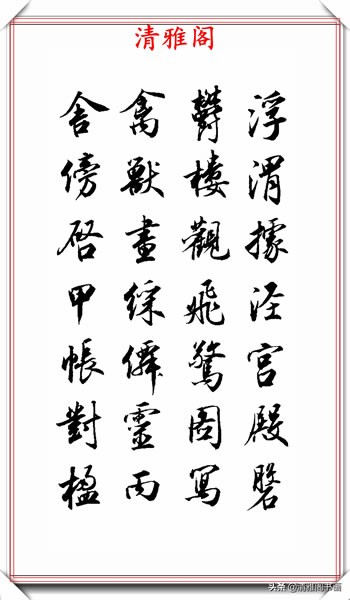 清雅阁
浮渭據涇宮殿磐
鬱樓觀飛驚圖寫
禽獸畫綵僊靈丙
舍傍啓甲帳對楹
头条@清雅阁书画